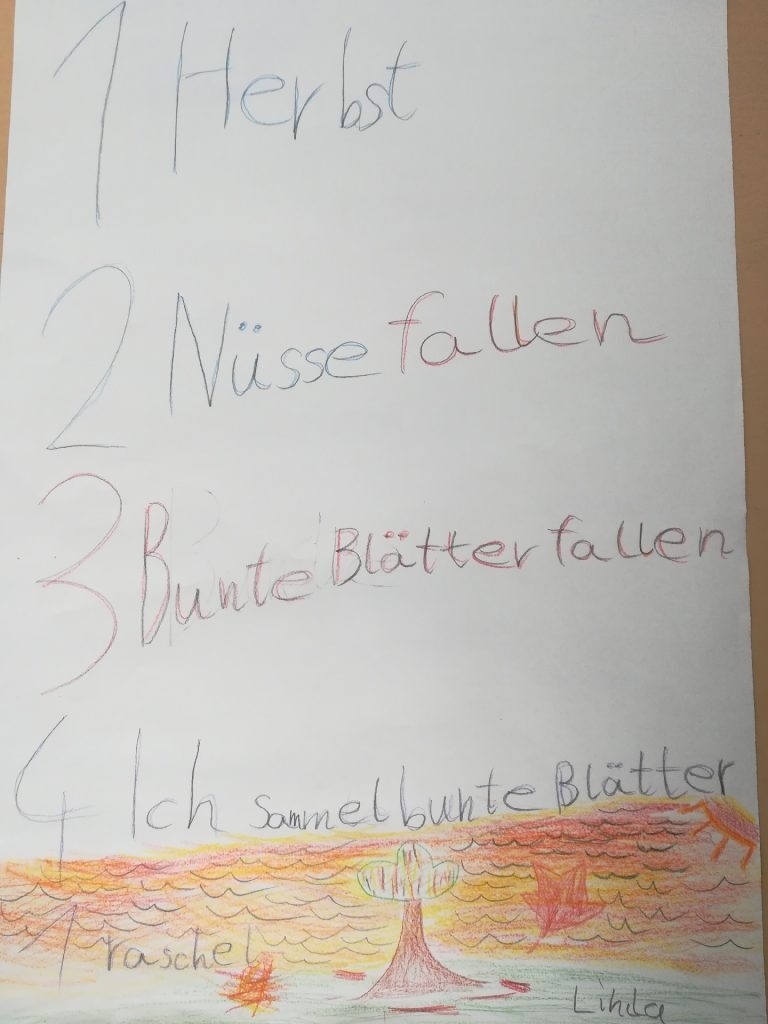 1 Herbst
2 Nüsse fallen
3 Bunte Blätter fallen
4 Ich sammel bunte Blätter
1 raschel
Linda